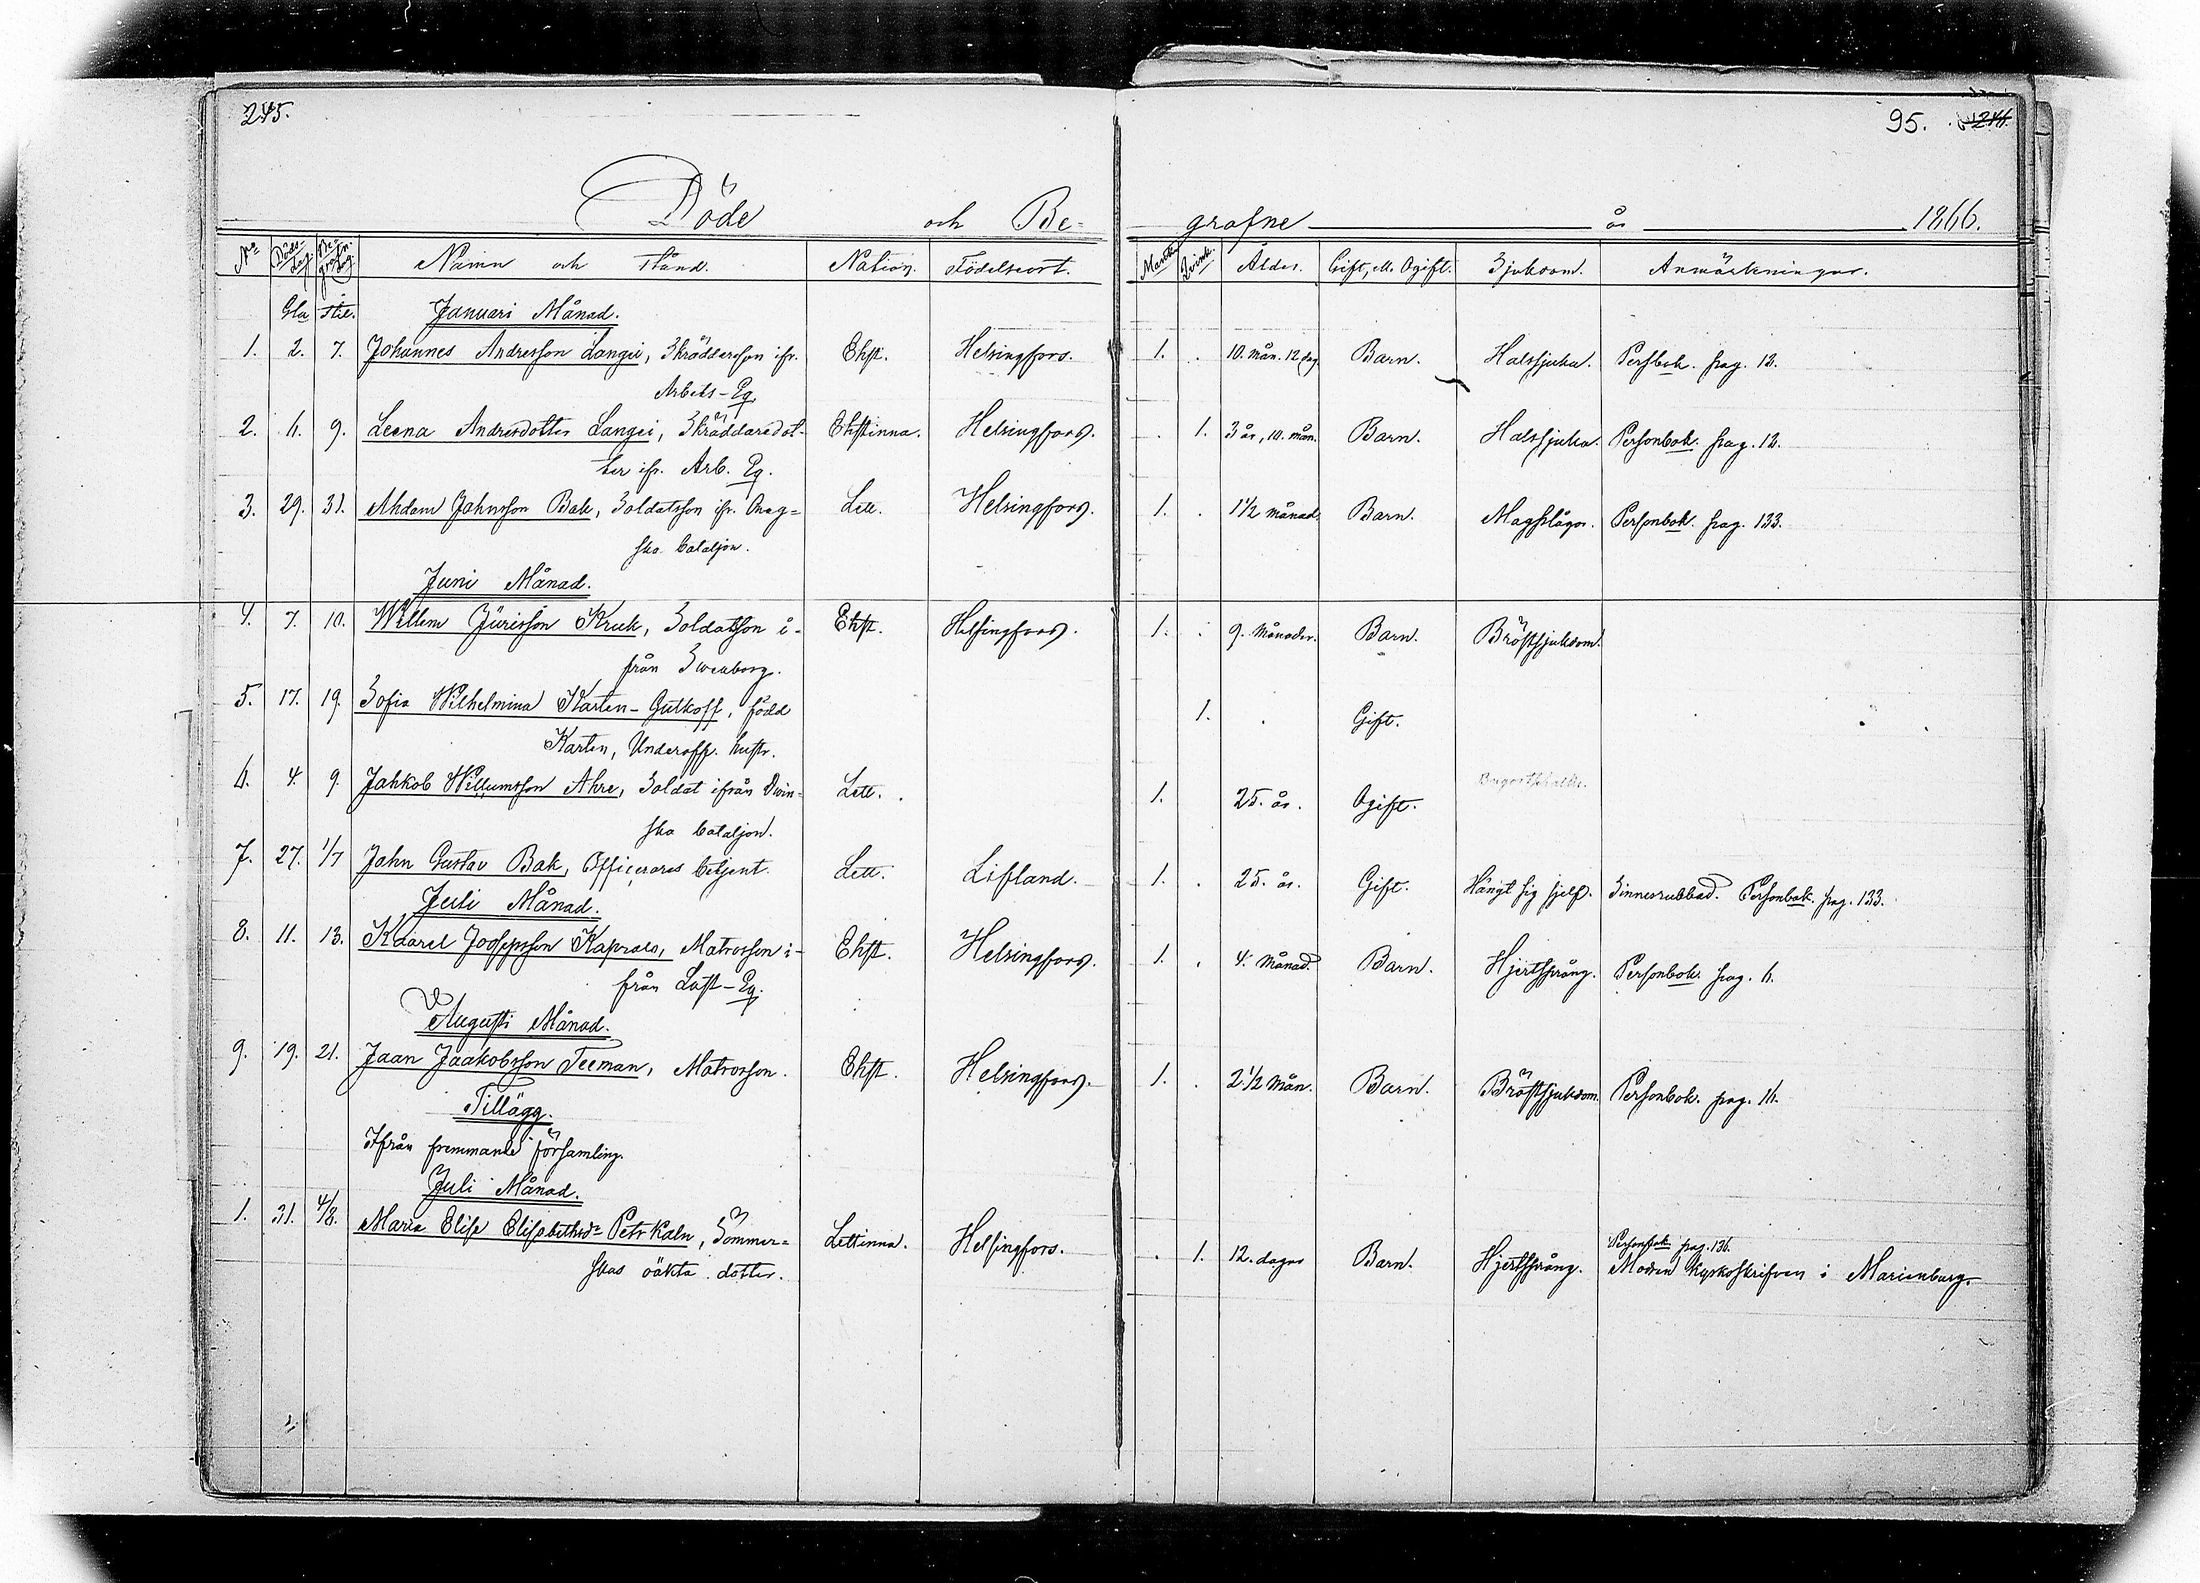 245.
95. 246.
Döde och Be= grafne år 1866.
No Döds- dag Be- grafn. dag Namn och stånd. Nation. Födelseort. Mank. Qvink. Ålder. Gift, ell. Ogift. Sjukdom. Anmärkningar.
Gla stil. Januari Månad.
1. 2. 7. Johannes Andresson Langei, Skräddarson ifr. Ehst. Helsingfors. 1. . 10. mån. 12 dag Barn. Halssjuka. Persbok. pag. 12.
Arbets-Eq.
2. 6. 9. Leena Andresdotter Langei, Skräddaredot- Ehstinna. Helsingfors. . 1. 3 år, 10. mån. Barn. Halssjuka. Personbok. pag. 12.
ter ifr. Arb. Eq.
3. 29. 31. Ahdam Jahnsson Bak, Soldatsson ifr. Oneg= Lett. Helsingfors. 1. . 1 1/2 månad. Barn. Magplågor. Personbok. pag. 133.
ska bataljon.
Juni Månad.
4. 7. 10. Willem Jürisson Kruk, Soldatsson i- Ehst. Helsingfors. 1. . 9. Månader. Barn. Bröstsjukdom.
från Sweaborg.
5. 17. 19. Sofia Wilhelmina Karten-Gutkoff, född 1. . Gift.
Karten, Underoff. hustr.
6. 4. 9. Jahkob Willumsson Ahre, Soldat ifrån Dwin- Lett. 1. 25. år. Ogift.
ska bataljon.
7. 27. 1/7 Jahn Gustav Bak, Officerares betjent. Lett. Lifland. 1. . 25. år. Gift. Hängt sig sjelf. Sinnesrubbad. Personbok. pag. 133.
Juli Månad.
8. 11. 13. Kaarel Joosepsson Kaprals, Matrosson i- Ehst. Helsingfors. 1. . 4. Månad. Barn. Hjertsprång. Personbok. pag. 6.
från Last-Eq.
Augusti Månad.
9. 19. 21. Jaan Jaakobsson Teeman, Matrosson. Ehst. Helsingfors. 1. . 2 1/2 Mån. Barn. Bröstsjukdom. Personbok. pag. 16.
Tillägg.
Ifrån fremmande församling.
Juli Månad.
1. 31. 4/8. Maria Elise Elisabethsd= Petrkaln, Sömmer= Lettinna. Helsingfors. . 1. 12. dagar Barn. Hjertsprång. Personbok pag. 136.
skas oäkta dotter. Modren kyrkoskrifven i Marienburg.